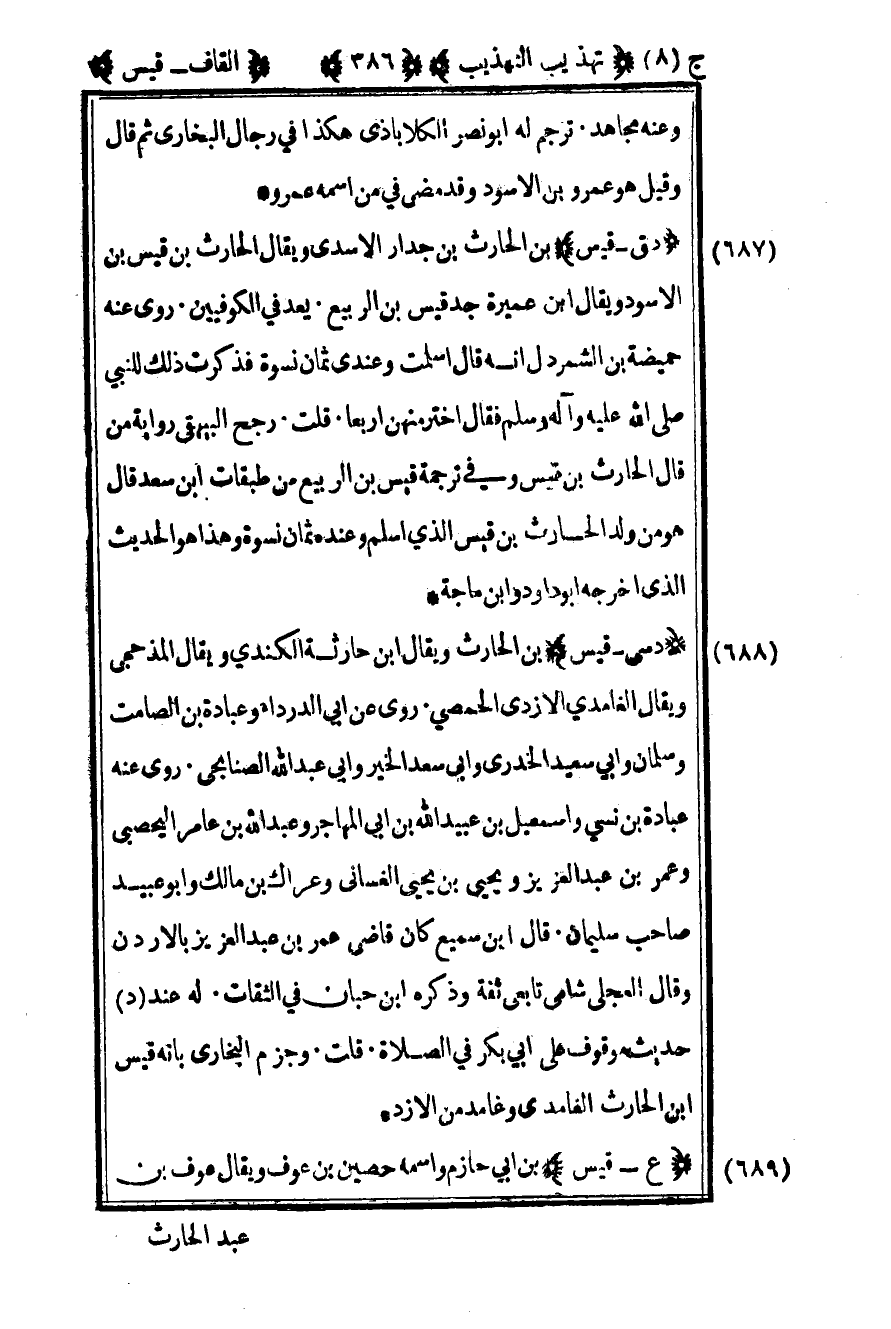 ج (٨) ﴿ تهذيب التهذيب ﴾ ﴿ ٣٨٦ ﴾ ﴿ القاف ـ قيس ﴾
وعنه مجاهد ٠ ترجم له ابونصر الكلاباذى هكذا في رجال البخارى ثم قال
وقيل هو عمرو بن الاسود وقد مضى في من اسمه عمرو *
(٦٨٧) ﴿ دق ـ قيس ﴾ بن الحارث بن جدار الاسدى ويقال الحارث بن قيس بن
الاسود ويقال ابن عميرة جد قيس بن الربيع ٠ يعد في الكوفيين ٠ روى عنه
حميضة بن الشمردل انه قال اسلمت وعندى ثمان نسوة فذكرت ذلك للنبي
صلى الله عليه وآله وسلم فقال اختر منهن اربعا ٠ قلت ٠ رجح البيهقى رواية من
قال الحارث بن قيس وفي ترجمة قيس بن الربيع من طبقات ابن سعد قال
هو من ولد الحارث بن قيس الذي اسلم وعنده ثمان نسوة وهذا هو الحديث
الذى اخرجه ابوداود وابن ماجة *
(٦٨٨) ﴿ دسى ـ قيس ﴾ بن الحارث ويقال ابن حارثة الكندي ويقال المذحجى
ويقال الغامدي الازدى الحمصي ٠ روى عن ابي الدرداء وعبادة بن الصامت
وسلمان وابي سعيد الخدرى وابي سعد الخير وابي عبدالله الصنابحى ٠ روى عنه
عبادة بن نسي واسمعيل بن عبيدالله بن ابى المهاجر وعبدالله بن عامر اليحصبى
وعمر بن عبدالعزيز ويحيى بن يحيى الغسانى وعراك بن مالك وابو عبيد
صاحب سليمان ٠ قال ابن سميع كان قاضى عمر بن عبدالعزيز بالاردن
وقال العجلى شامى تابعى ثقة وذكره ابن حبان في الثقات ٠ له عند (د)
حديث موقوف على ابي بكر في الصلاة ٠ قلت ٠ وجزم البخارى بانه قيس
ابن الحارث الغامدى وغامد من الازد *
(٦٨٩) ﴿ ع ـ قيس ﴾ بن ابي حازم واسمه حصين بن عوف ويقال عوف بن
عبد الحارث